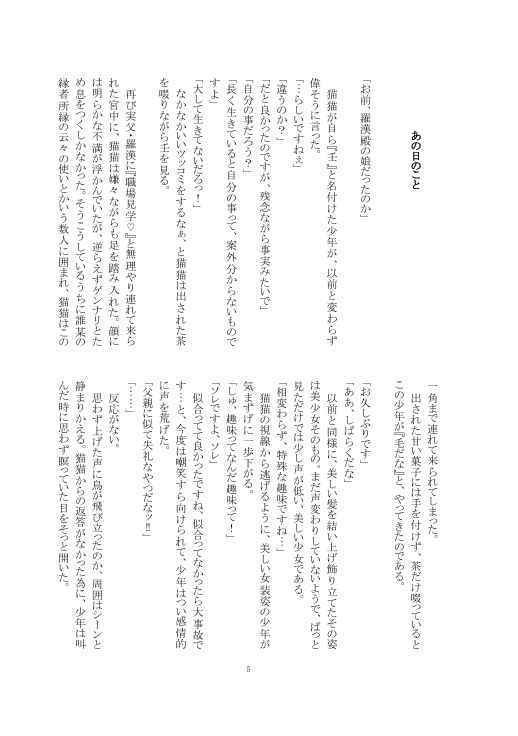 あの日のこと
「お前、羅漢殿の娘だったのか」
　猫猫が自ら『壬』と名付けた少年が、以前と変わらず
偉そうに言った。
「…らしいですねぇ」
「違うのか？」
「だと良かったのですが、残念ながら事実みたいで」
「自分の事だろう？」
「長く生きていると自分の事って、案外分からないもので
すよ」
「大して生きてないだろっ！」
　なかなかいいツッコミをするなぁ、と猫猫は出された茶
を啜りながら壬を見る。
　再び実父・羅漢に『職場見学♡』と無理やり連れて来ら
れた宮中に、猫猫は嫌々ながらも足を踏み入れた。顔に
は明らかな不満が浮かんでいたが、逆らえずゲンナリとた
め息をつくしかなかった。そうこうしているうちに誰某の
縁者所縁の云々の使いとかいう数人に囲まれ、猫猫はこの
一角まで連れて来られてしまった。
　出された甘い菓子には手を付けず、茶だけ啜っていると
この少年が『毛だな』と、やってきたのである。
「お久しぶりです」
「ああ、しばらくだな」
　以前と同様に、美しい髪を結い上げ飾り立てたその姿
は美少女そのもの。まだ声変わりしていないようで、ぱっと
見ただけでは少し声が低い、美しい少女である。
「相変わらず、特殊な趣味ですね…」
　猫猫の視線から逃げるように、美しい女装姿の少年が
気まずげに一歩下がる。
「しゅ、趣味ってなんだ趣味って！」
「ソレですよ、ソレ」
　似合ってて良かったですね、似合ってなかったら大事故で
す…と、今度は嘲笑すら向けられて、少年はつい感情的
に声を荒げた。
「父親に似て失礼なやつだなッ!!」
「……」
　反応がない。
　思わず上げた声に鳥が飛び立ったのか、周囲はシーンと
静まりかえる。猫猫からの返答がなかった為に、少年は叫
んだ時に思わず瞑っていた目をそっと開いた。
5